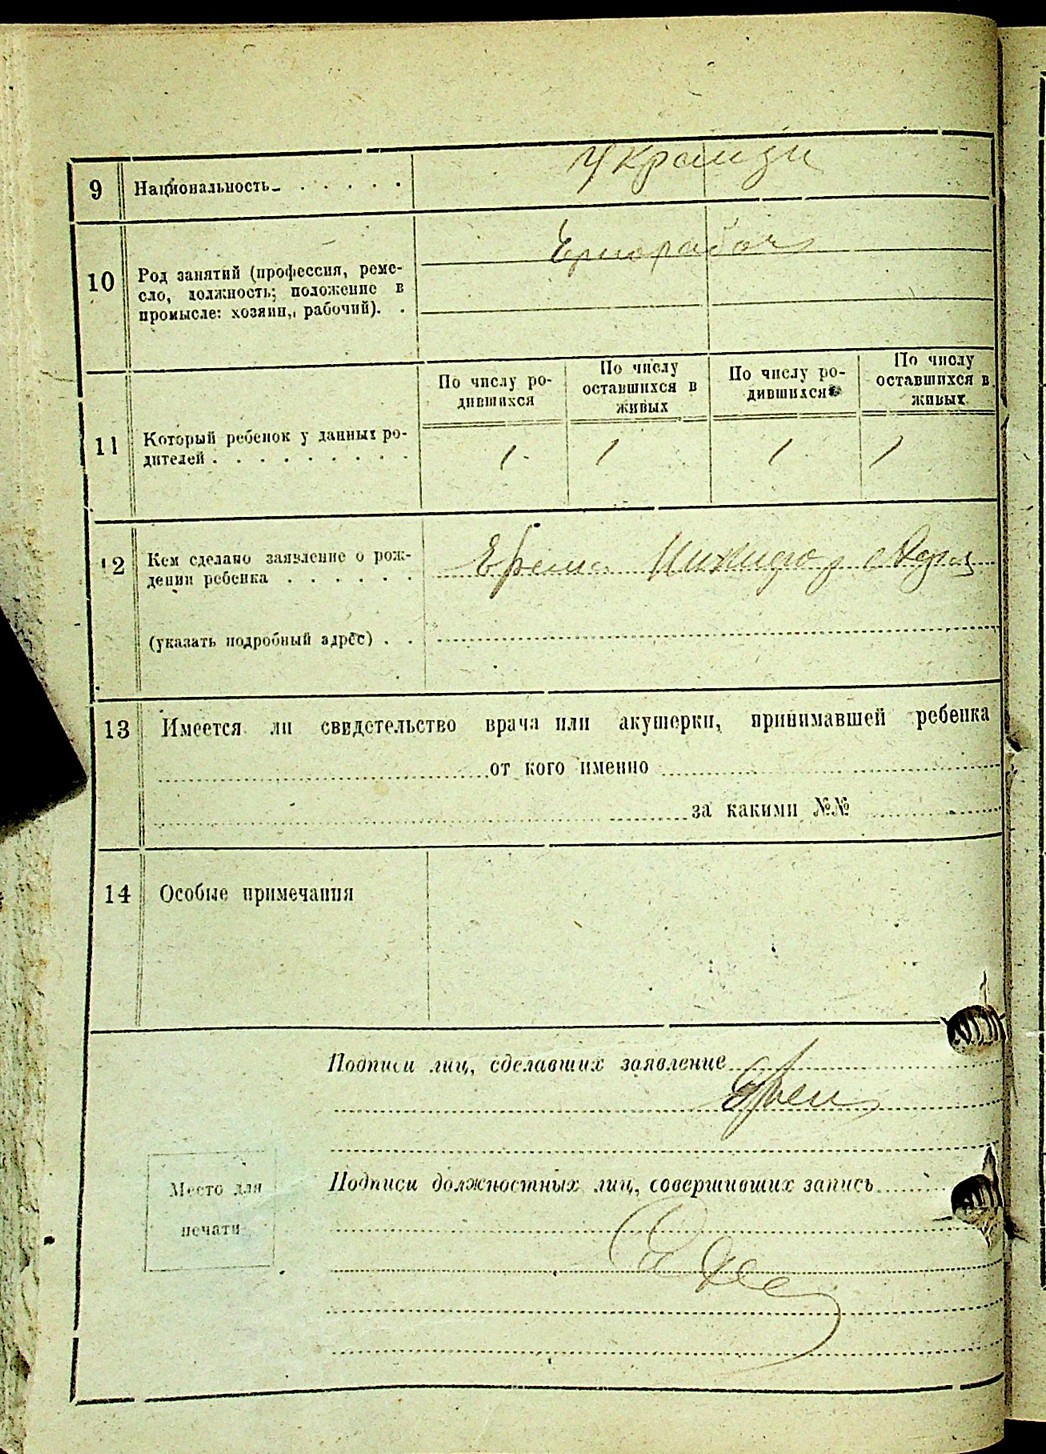 9 Национальность . . . . . . Украинзи
10 Род занятий (профессия, реме-
сло, должность; положение в
промысле: хозяин, рабочий). .
По числу ро-
дившихся
По числу
оставшихся в
живых
По числу ро-
дившихся
По числу
оставшихся в
живых
11 Который ребенок у данных ро-
дителей . . . . . . . . . 1 1 1 1
12 Кем сделано заявление о рож-
дении ребенка . . . . . .
(указать подробный адрес) . .
13 Имеется ли свидетельство врача или акушерки, принимавшей ребенка
от кого именно
за какими №№
14 Особые примечания
Подписи лиц, сделавших заявление
Подписи должностных лиц, совершивших запись
Место для
печати